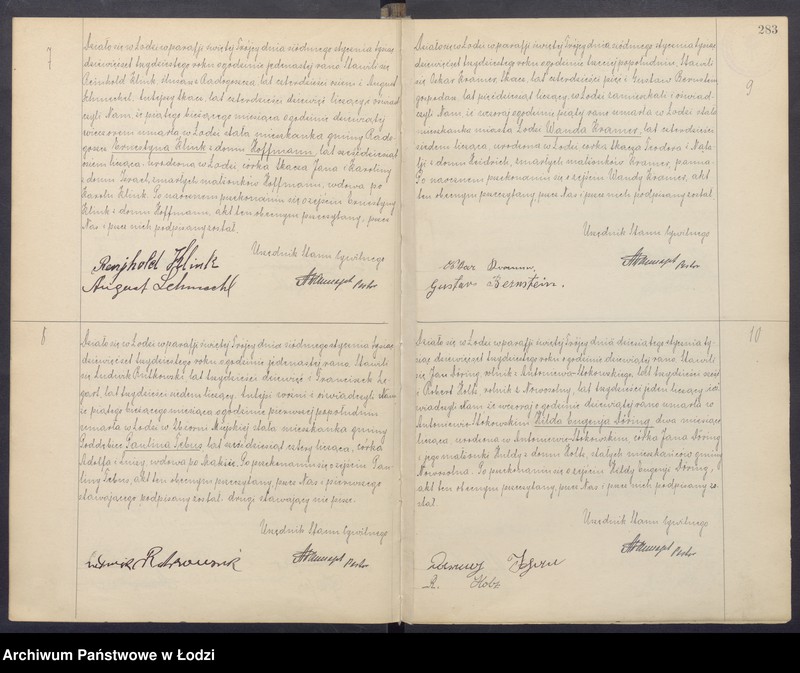 7
Działo się w Łodzi w parafji świętej Trójcy dnia siódmego stycznia tysiąc
dziewięćset trzydziestego roku o godzinie jedenastej rano. Stawili się
Reinhold Klink, z Radogoszcza, lat czterdzieści i August
Schmechel, tutejszy tkacz, lat czterdzieści dziewięć liczący i oświad-
czyli Nam, że piątego bieżącego miesiąca o godzinie dziewiątej
wieczorem umarła w Łodzi stała mieszkanka gminy Rado-
goszcz Ernestyna Klink z domu Hoffmann, lat sześćdziesiąt
licząca, urodzona w Łodzi, córka tkacza Jana i Karoliny
z domu zmarłych małżonków Hoffmann, wdowa po
Karolu Klink. Po naocznem przekonaniu się o zejściu Ernestyny
Klink z domu Hoffmann, akt ten obecnym przeczytany, przez
Nas i przez nich podpisany został.
Urzędnik Stanu Cywilnego
Reinhold Klink
August Schmechel
Pastor
8
Działo się w Łodzi w parafji świętej Trójcy dnia siódmego stycznia tysiąc
dziewięćset trzydziestego roku o godzinie jedenastej rano. Stawili
się Ludwik Rutkowski lat trzydzieści dziewięć i Franciszek
lat trzydzieści siedem liczący, tutejsi woźni i oświadczyli Nam,
że piątego bieżącego miesiąca o godzinie pierwszej popołudniu
umarła w Łodzi w Zbiorni Miejskiej stała mieszkanka gminy
Poddębice Paulina Tebus, lat sześćdziesiąt cztery licząca, córka
Adolfa i wdowa po Po przekonaniu się o zejściu Pau-
liny Tebus, akt ten obecnym przeczytany, przez Nas i pierwszego
stawającego podpisany został, drugi stawający nie pisze.
Urzędnik Stanu Cywilnego
Pastor
283
9
Działo się w Łodzi w parafji świętej Trójcy dnia siódmego stycznia tysiąc
dziewięćset trzydziestego roku o godzinie trzeciej popołudniu. Stawili
się Oskar Kramer, tkacz, lat czterdzieści pięć i Gustaw Bernstein
gospodarz, lat pięćdziesiąt liczący, w Łodzi zamieszkali i oświad-
czyli Nam, że wczoraj o godzinie piątej rano umarła w Łodzi stała
mieszkanka miasta Łodzi Wanda Kramer, lat czterdzieści
siedem licząca, urodzona w Łodzi, córka tkacza Teodora i Nata-
lji z domu Freidrich, zmarłych małżonków Kramer, panna.
Po naocznem przekonaniu się o zejściu Wandy Kramer, akt
ten obecnym przeczytany, przez Nas i przez nich podpisany został.
Urzędnik Stanu Cywilnego
Gustav Bernstein.
Pastor
10
Działo się w Łodzi w parafji świętej Trójcy dnia dziesiątego stycznia ty-
siąc dziewięćset trzydziestego roku o godzinie dziewiątej rano. Stawili
się Jan Döring, rolnik z Antoniewa-Stokowskiego, lat dwadzieścia sześć
i Robert Holtz, rolnik z Nowosolny, lat trzydzieści jeden liczący i oś-
wiadczyli Nam, że wczoraj o godzinie dziewiątej rano umarła w
Antoniewie-Stokowskim Hilda Eugenja Döring, dwa miesiące
licząca, urodzona w Antoniewie-Stokowskim, córka Jana Döring
i jego małżonki Huldy z domu Holtz, stałych mieszkańców gminy
Nowosolna. Po przekonaniu się o zejściu Hildy Eugenji Döring,
akt ten obecnym przeczytany, przez Nas i przez nich podpisany zo-
stał.
Urzędnik Stanu Cywilnego
R. Holtz
Pastor
Archiwum Państwowe w Łodzi